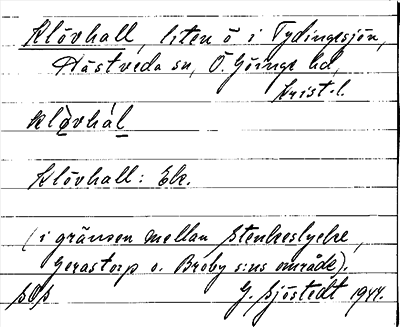 Klövhall, liten ö i Tydingesjön,
Hästveda sn, Ö. Göinge hd,
Krist.l.
klö̀vhál
Klövhall: Ek.
(i gränsen mellan Stenkeslycke,
Gerastorp o. Broby s:ns område).
G. Sjöstedt 1944.